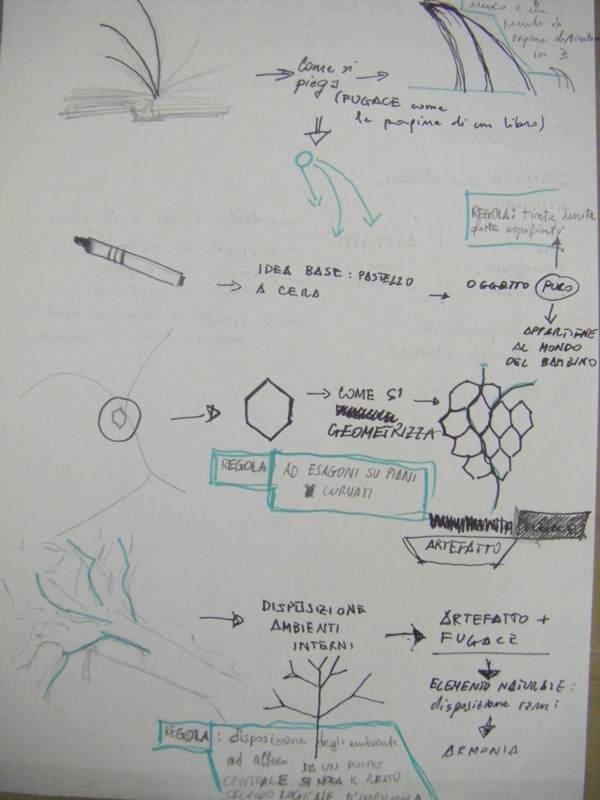 punto di
origine
in 3
COME SI
PIEGA
(FUGACE come
le pagine di un libro)
REGOLA: tinta unita
forte
IDEA BASE: PASTELLO
A CERA
OGGETTO PURO
APPARTIENE
AL MONDO
DEL BAMBINO
COME SI
GEOMETRIZZA
REGOLA: AD ESAGONI SU PIANI
CURVATI
ARTEFATTO
DISPOSIZIONE
AMBIENTI
INTERNI
ARTEFATTO +
FUGACE
ELEMENTO NATURALE:
disposizione rami
ARMONIA
REGOLA: disposizione degli ambienti
ad albero. DA UN PUNTO
CENTRALE SI SNODA IL RESTO
SECONDO